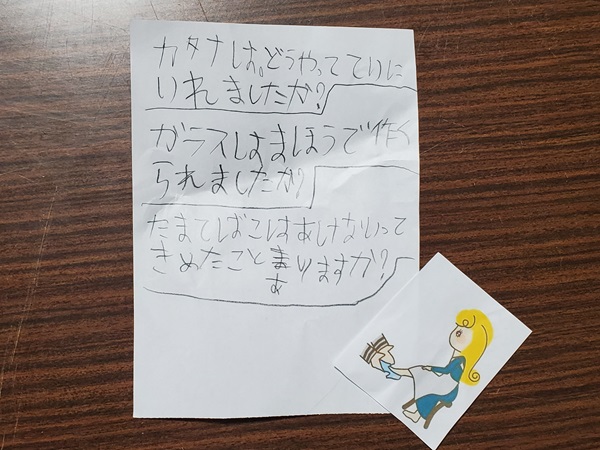 カタナは。どうやっててりに
いれましたか?
ガラスはまほうで作く
られましたか?
たまてばこはあけないって
きめたことまりますか?
あ